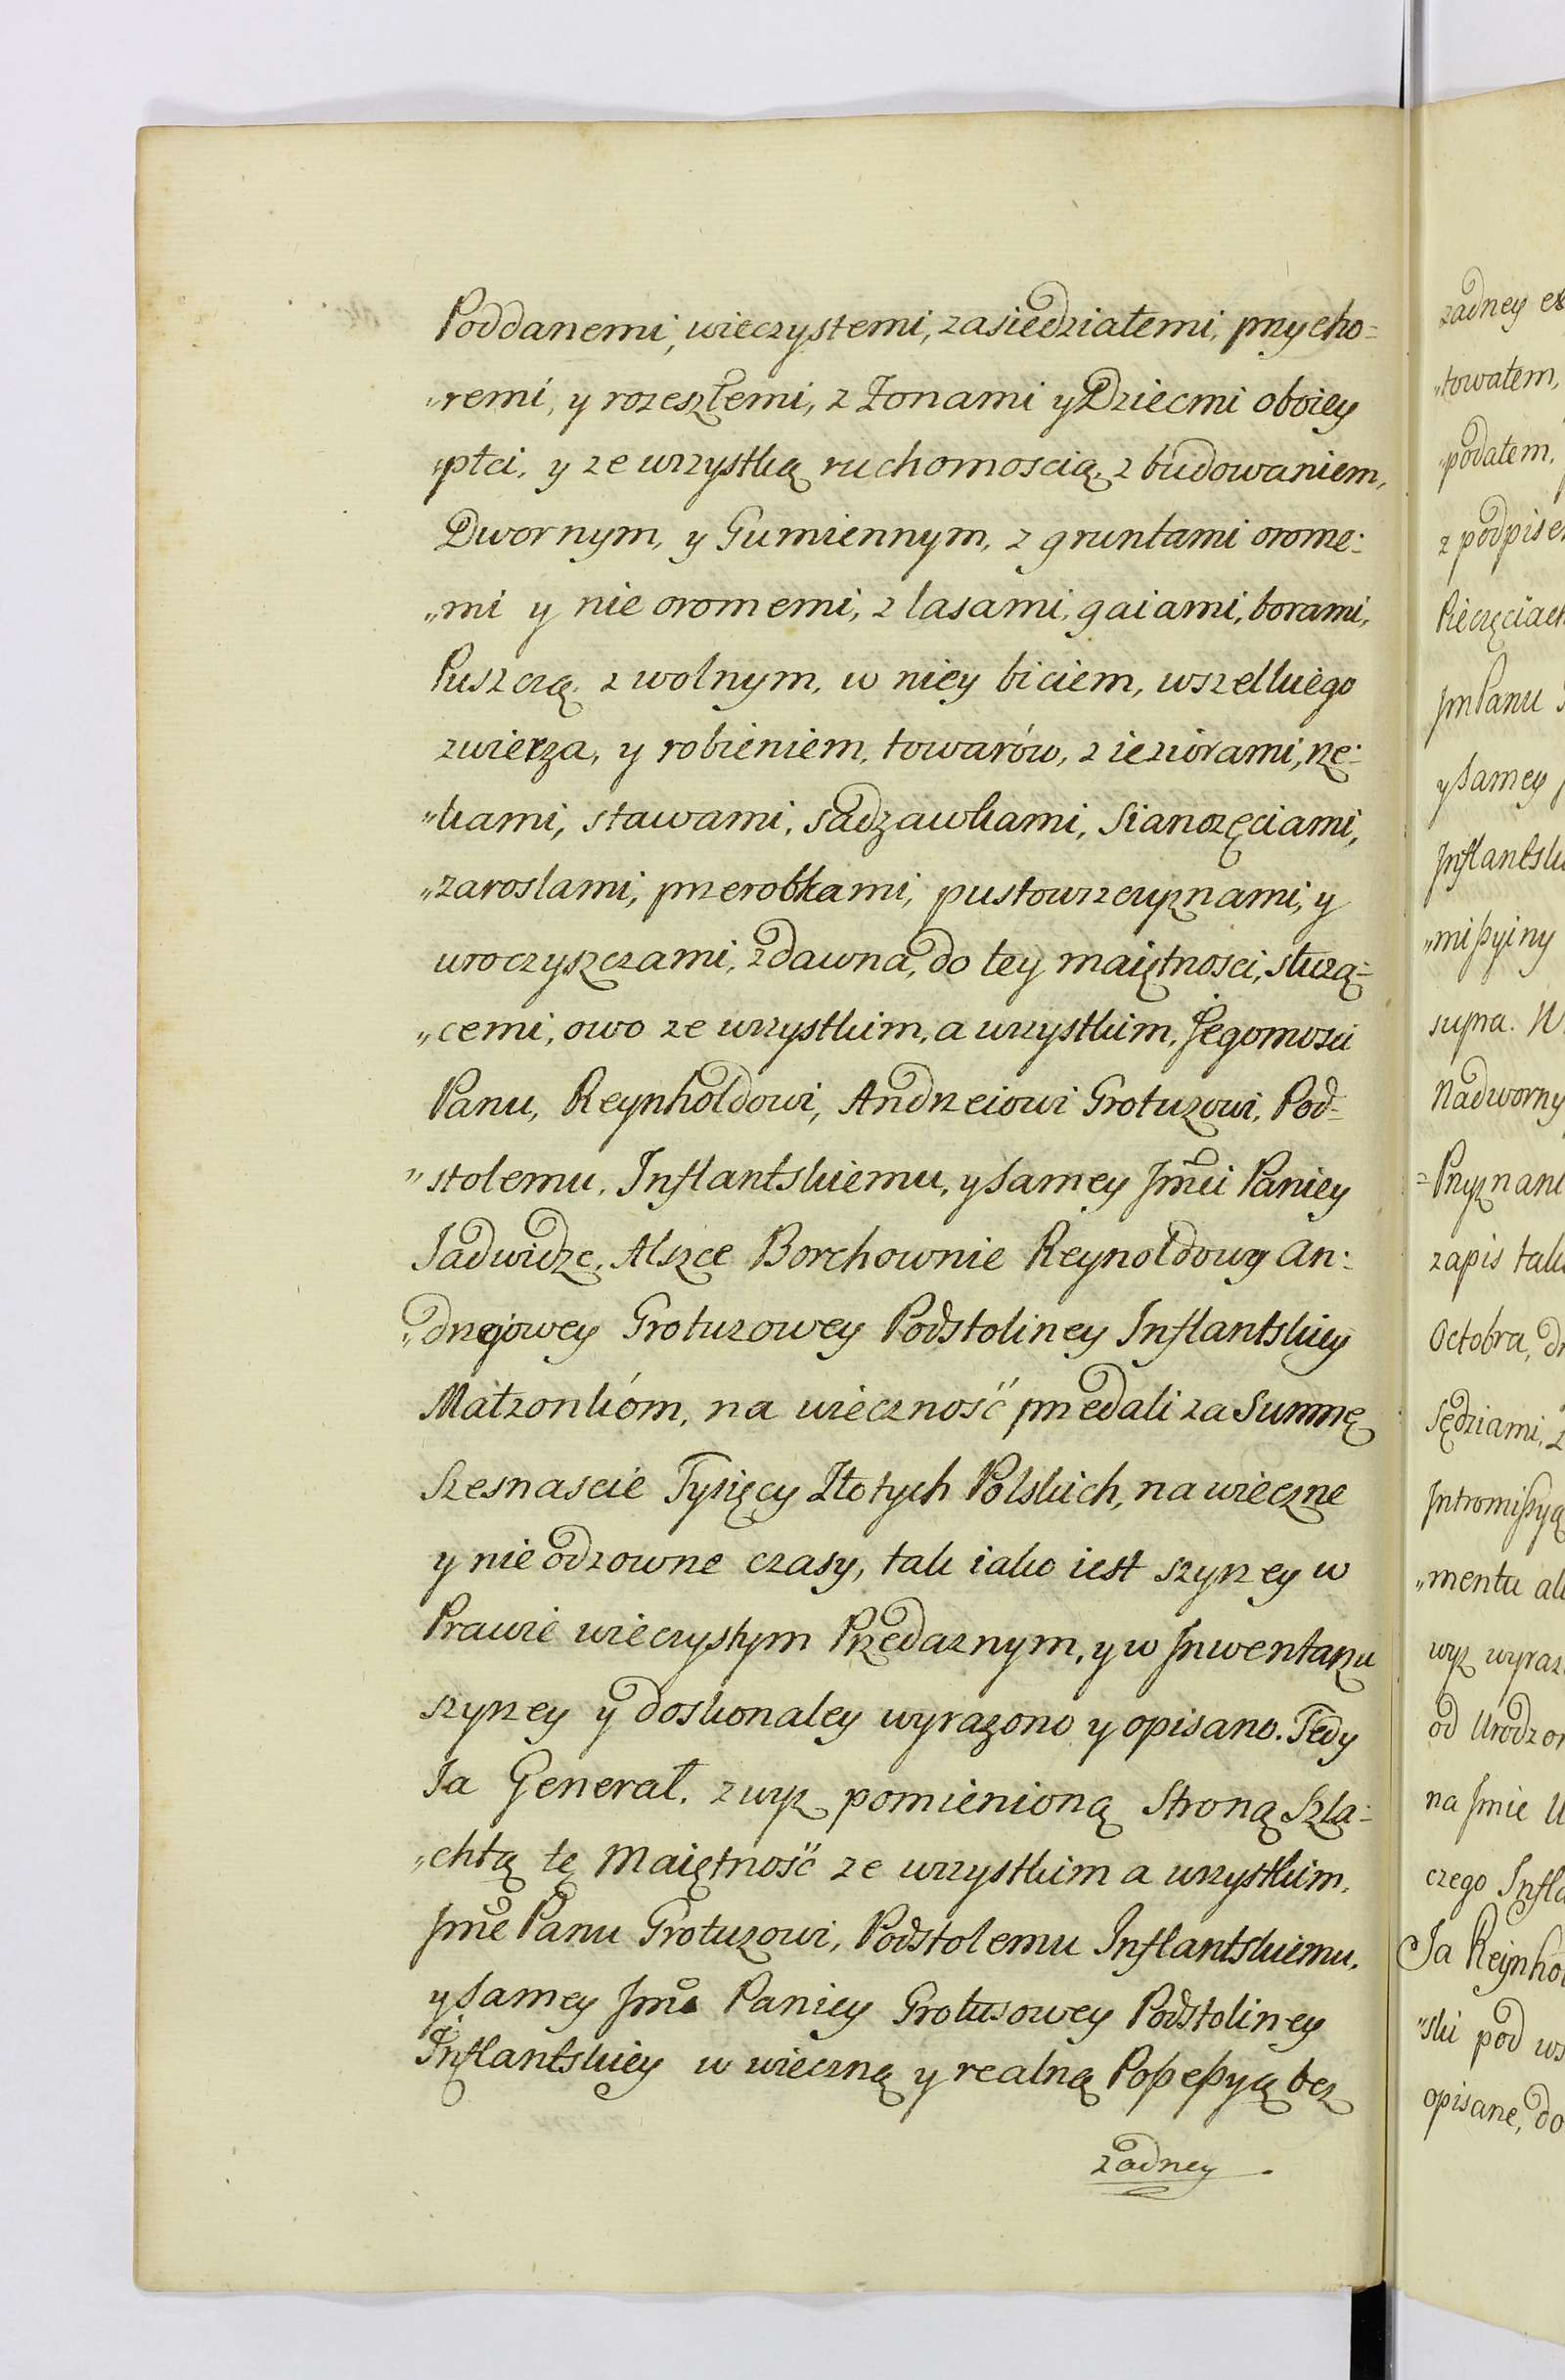 Poddanemi, wieczystemi, zasiedziałemi, przycho=
„remi, y rozeszłemi, z Zonami y Dziecmi oboiey
„płci, y ze wszystką ruchomoscią, z budowaniem,
Dwornym, y Gumiennym, z gruntami orome:
„mi y nie oromemi, z lasami, gaiami, borami,
Puszczą, z wolnym, w niey biciem, wszelkiego
zwierza, y robieniem, towarów, z ieziorami, rze:
„kami, stawami, sadzawkami, Sianozęciami,
„zaroslami, przerobkami, pustowszczyznami, y
uroczyszczami, zdawna, do tey maiętnosci, słuzą=
„cemi, owo ze wszystkim, a wszystkim, Jegomosci
Panu, Reynholdowi, Andrzeiowi Grotuzowi, Pod=
„stolemu, Inflantskiemu, y samey Jmći Paniey
Jadwidze, Alszce Borchownie Reynoldowy An:
„drzejowey Grotuzowey Podstoliney Inflantskiey
Małzonkóm, na wieczność przedali za Summę
Szesnascie Tysięcy Złotych Polskich, na wieczne
y nie odzowne czasy, tak iako iest szyrzey w
Prawie wieczystym Przedaznym, y w Inwentarzu
szyrzey y doskonaley wyrazono y opisano. Tedy
Ja Generał, z wyz pomienioną Stroną Szla=
„chtą tę Maiętność ze wszystkim a wszystkim,
Jmć Panu Grotuzowi, Podstolemu Inflantskiemu,
y samey Jmć Paniey Grotusowey Podstoliney
Inflantskiey w wieczną y realną Possessyą bez
zadney

zadney ex
„towałem,
„podałem,
z podpise
Pieczęciach
Jm Panu
y samey
Inflantsk
„missyiny
supra. W
Nadworny
=Przyznani
zapis tak
Octobra,
Sędziami,
Intromissyą
„mentu
wyz wyraz
od Urodzon
na Jmie
czego Infla
Ja Reynhol
„ski pod ws
opisane, do